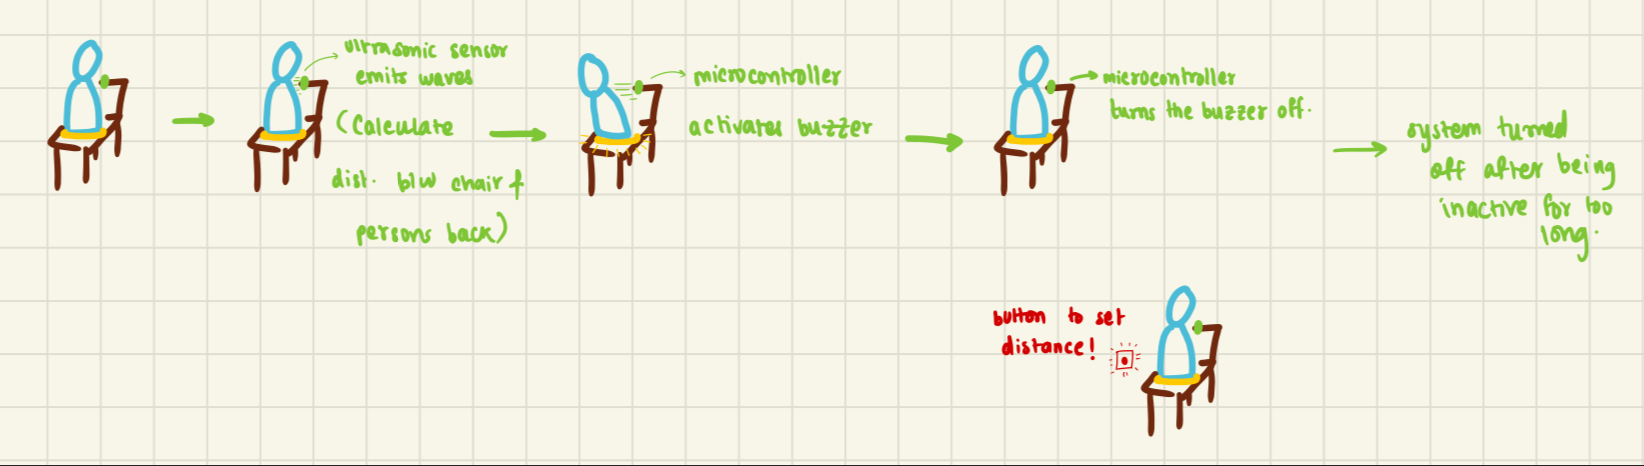 ultrasonic sensor
emits waves
(Calculate
dist. b/w chair &
persons back)
microcontroller
activates buzzer
microcontroller
turns the buzzer off.
system turned
off after being
inactive for too
long.
button to set
distance!